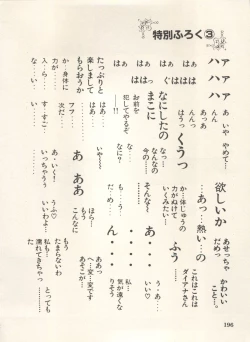 特別ふろく③
ァァァ
ハハハ
はぁ はぁ はぁ はぁ
あ いや やめて…
ああっ
んんっ
はうっ
くうっ
なにしたの
まこに
なっ…
なんなの
今の…
お前を
犯してやるぞ
──!!
いや
なに?
たっぷりと
楽しまして
もらおうか
はぁ
フフ
次だ
か…身体に
力が
入…ら…
な…い…
す…すご
い…
欲しいか
あせっちゃ
だめっ
かわいい
こと…。
あっ…熱い…の
これはこれは
ダイアナさん
か…体じゅうの
力がぬけて
いくみたい…
ふう
そんな〜
あ・・・
あ…
いい♡
も…う
だ…め…
ん・・・
私…
気が遠くな
りそう
あああ
ほら…
もう
こんなに
ああっ
へ…変…変です
あそこが…
あ…いく!
いっちゃうう
うふ♡
いいわよ…
私も…
たまらないわ
私も…
濡れてきちゃっ
た…
とっても
196